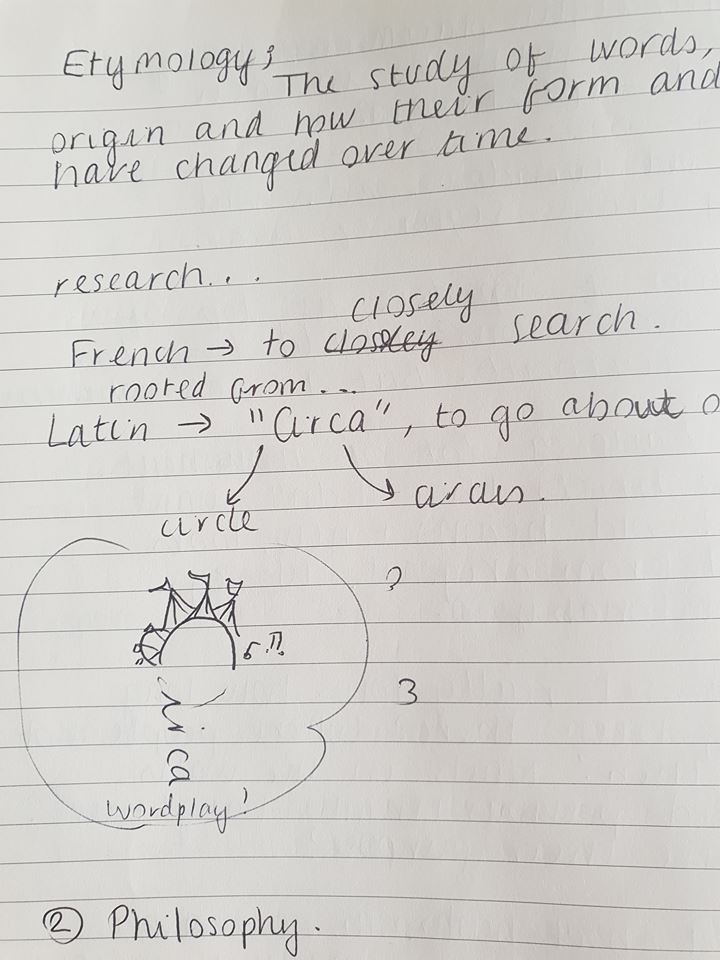 Etymology; The study of words,
origin and how their form and
have changed over time.
research...
closely
French → to search.
rooted from...
Latin → "Circa", to go about o
circle
circus.
?
3
wordplay!
② Philosophy.